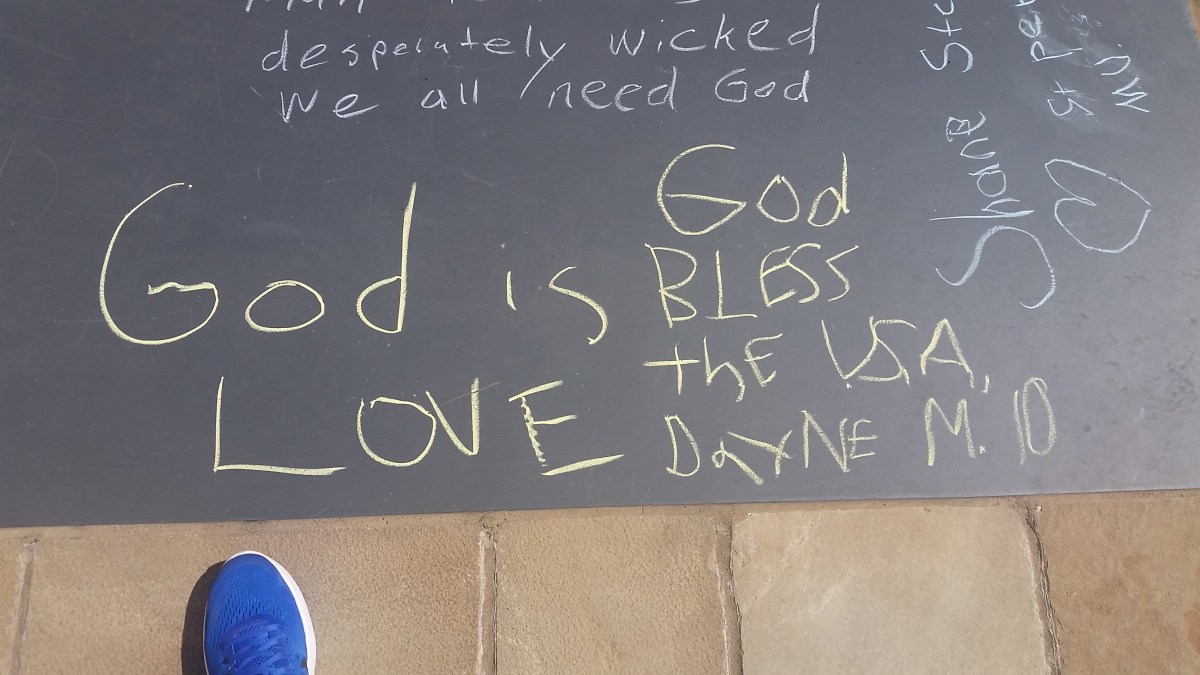 desperately wicked
We all need God
God is
LOVE
God
BLESS
thE USA,
DAYNE M. D
Shane
St